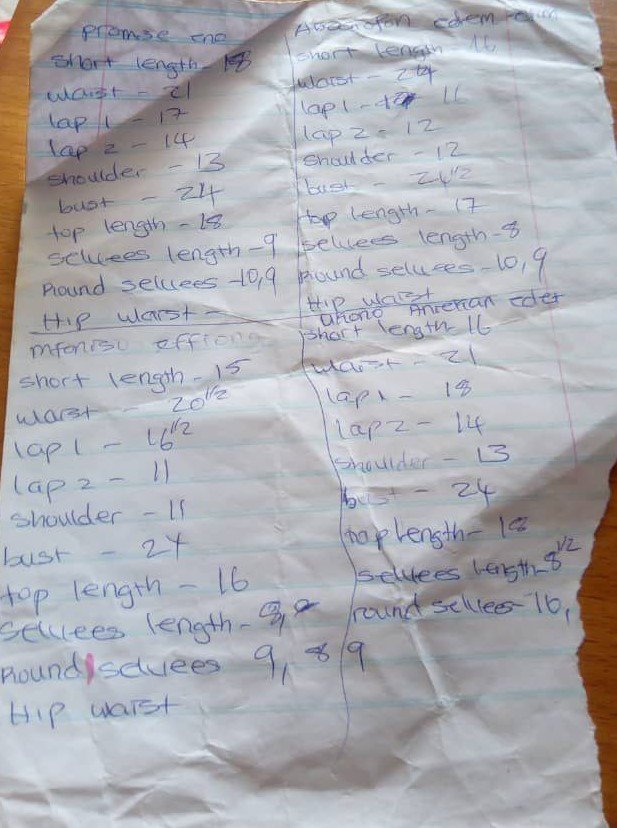 promise eno
short length - 18
waist - 21
lap 1 - 17
lap 2 - 14
shoulder - 13
bust - 24
top length - 18
selvees length - 9
Round selvees - 10,9
Hip waist -
edem
short length - 16
waist - 24
lap 1 - 11
lap 2 - 12
shoulder - 12
bust - 24 1/2
top length - 17
selvees length - 8
Round selvees - 10,9
Hip waist
mfoniso effiong
short length - 15
waist - 20 1/2
lap 1 - 16 1/2
lap 2 - 11
shoulder - 11
bust - 24
top length - 16
selvees length - 8,
Round selvees 9, 8
Hip waist
short length - 16
waist - 21
lap 1 - 18
lap 2 - 14
shoulder - 13
bust - 24
top length - 18
selvees length - 8 1/2
round selvees - 10,
9